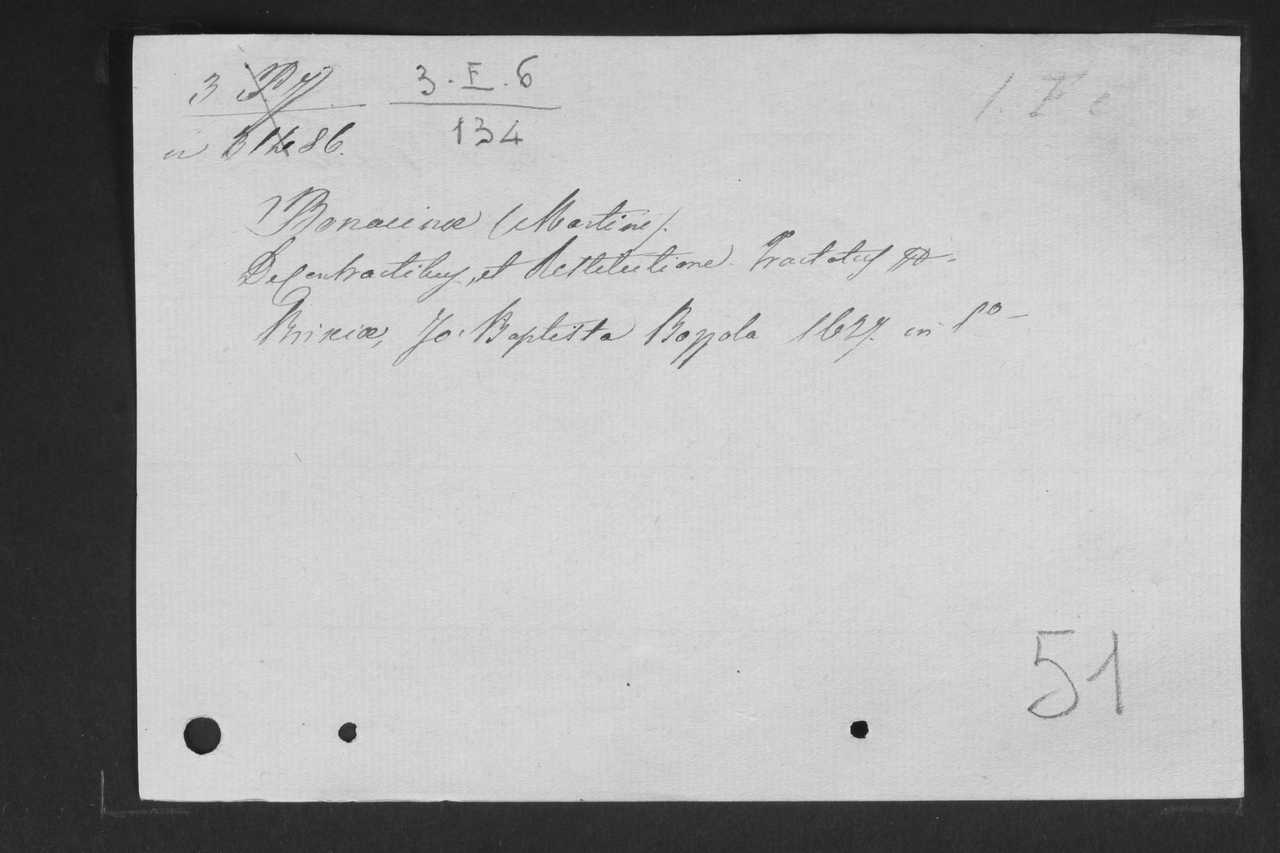 3 3. E. 6
134
86.
Bonacinæ (Martini).
De Contractibus, et Restitutione Tractatus
Brixiæ, Jo: Baptista Bozzola 1627. in f.º
51